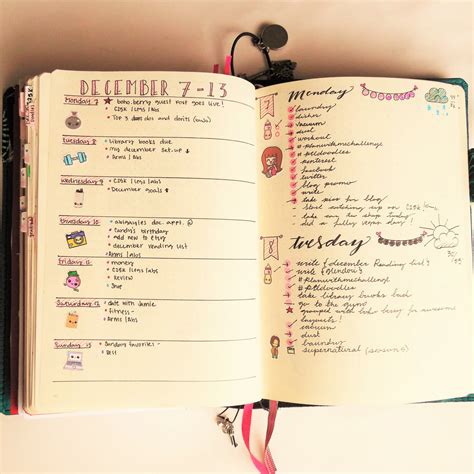 DECEMBER 7-13
monday 7
boho.berry guest post goes live!
C25K / legs / abs
Top 3 dos and don'ts
tuesday 8
library books due
my december set-up
Arms / Abs
wednesday 9
C25K / legs / abs
December goals
thursday 10
abigayles doc. appt.
birthday
add new to etsy
december reading list
Arms / Abs
friday 11
money
C25K / legs / abs
Review
Shop
Saturday 12
date with Jamie
fitness
Arms / abs
Sunday 13
Sunday favorites
Rest
7
Monday
laundry
dishes
vacuum
dust
workout
#planwithmechallenge
#ptldoodles
pinterest
facebook
twitter
blog promo
write
take pics for blog
8
tuesday
write december Reading list
write
#planwithmechallenge
#ptldoodles
take library books back
go to the gym
grouped with
layouts!
vacuum
dust
laundry
supernatural (season